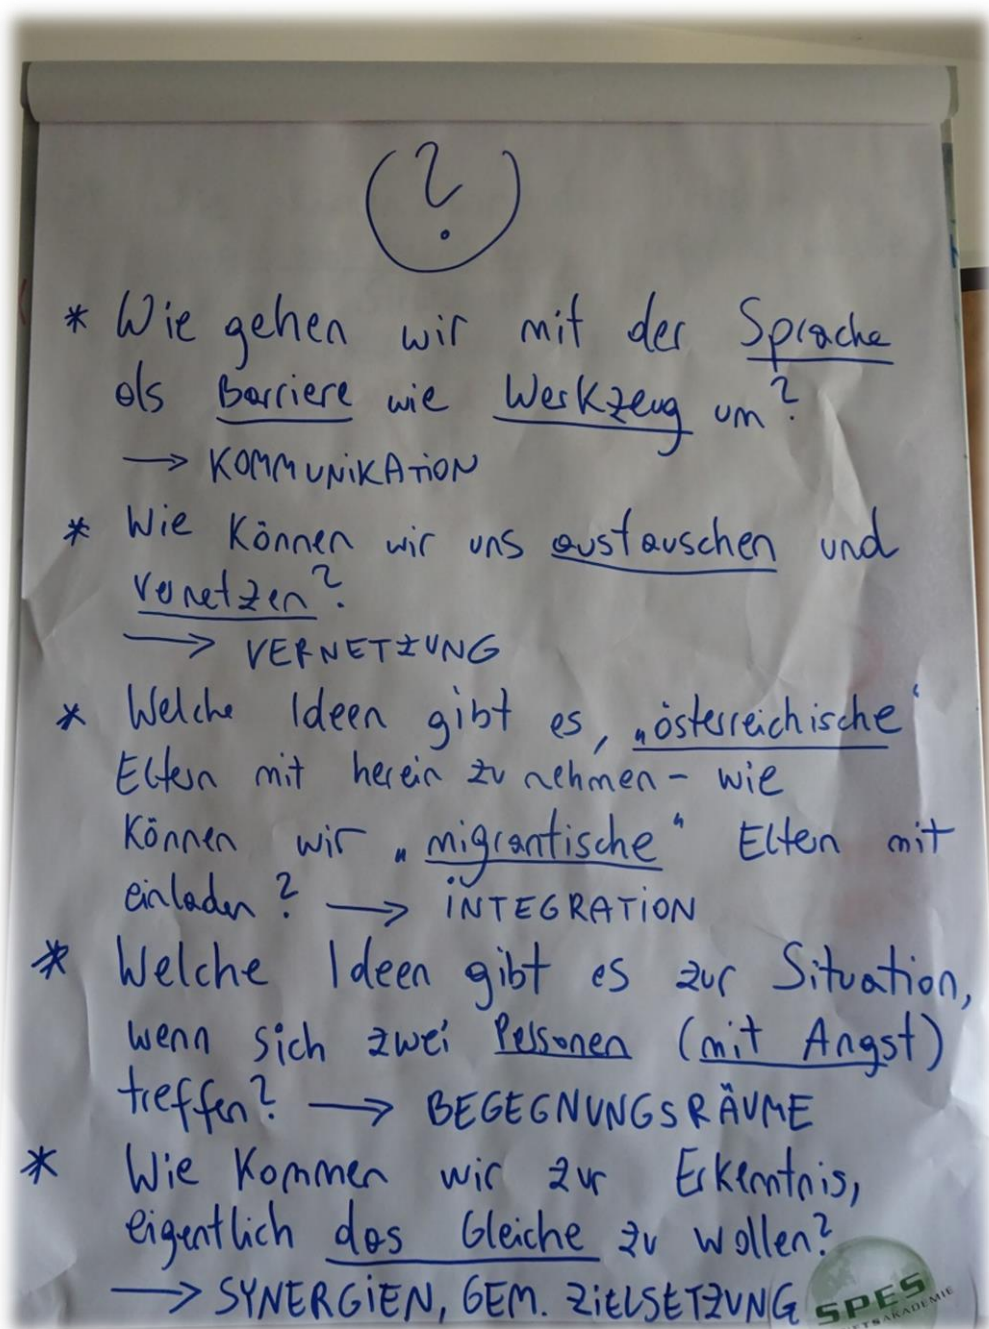 ?
* Wie gehen wir mit der Sprache
als Barriere wie Werkzeug um?
→ KOMMUNiKATiON
* Wie können wir uns austauschen und
vernetzen?
→ VERNETZUNG
* Welche Ideen gibt es, „österreichische“
Eltern mit herein zu nehmen - wie
können wir „migrantische“ Eltern mit
einladen? → iNTEGRATiON
* Welche Ideen gibt es zur Situation,
wenn sich zwei Personen (mit Angst)
treffen? → BEGEGNUNGSRÄUME
* Wie kommen wir zur Erkenntnis,
eigentlich das Gleiche zu wollen?
→ SYNERGiEN, GEM. ZiELSETZUNG
SPES